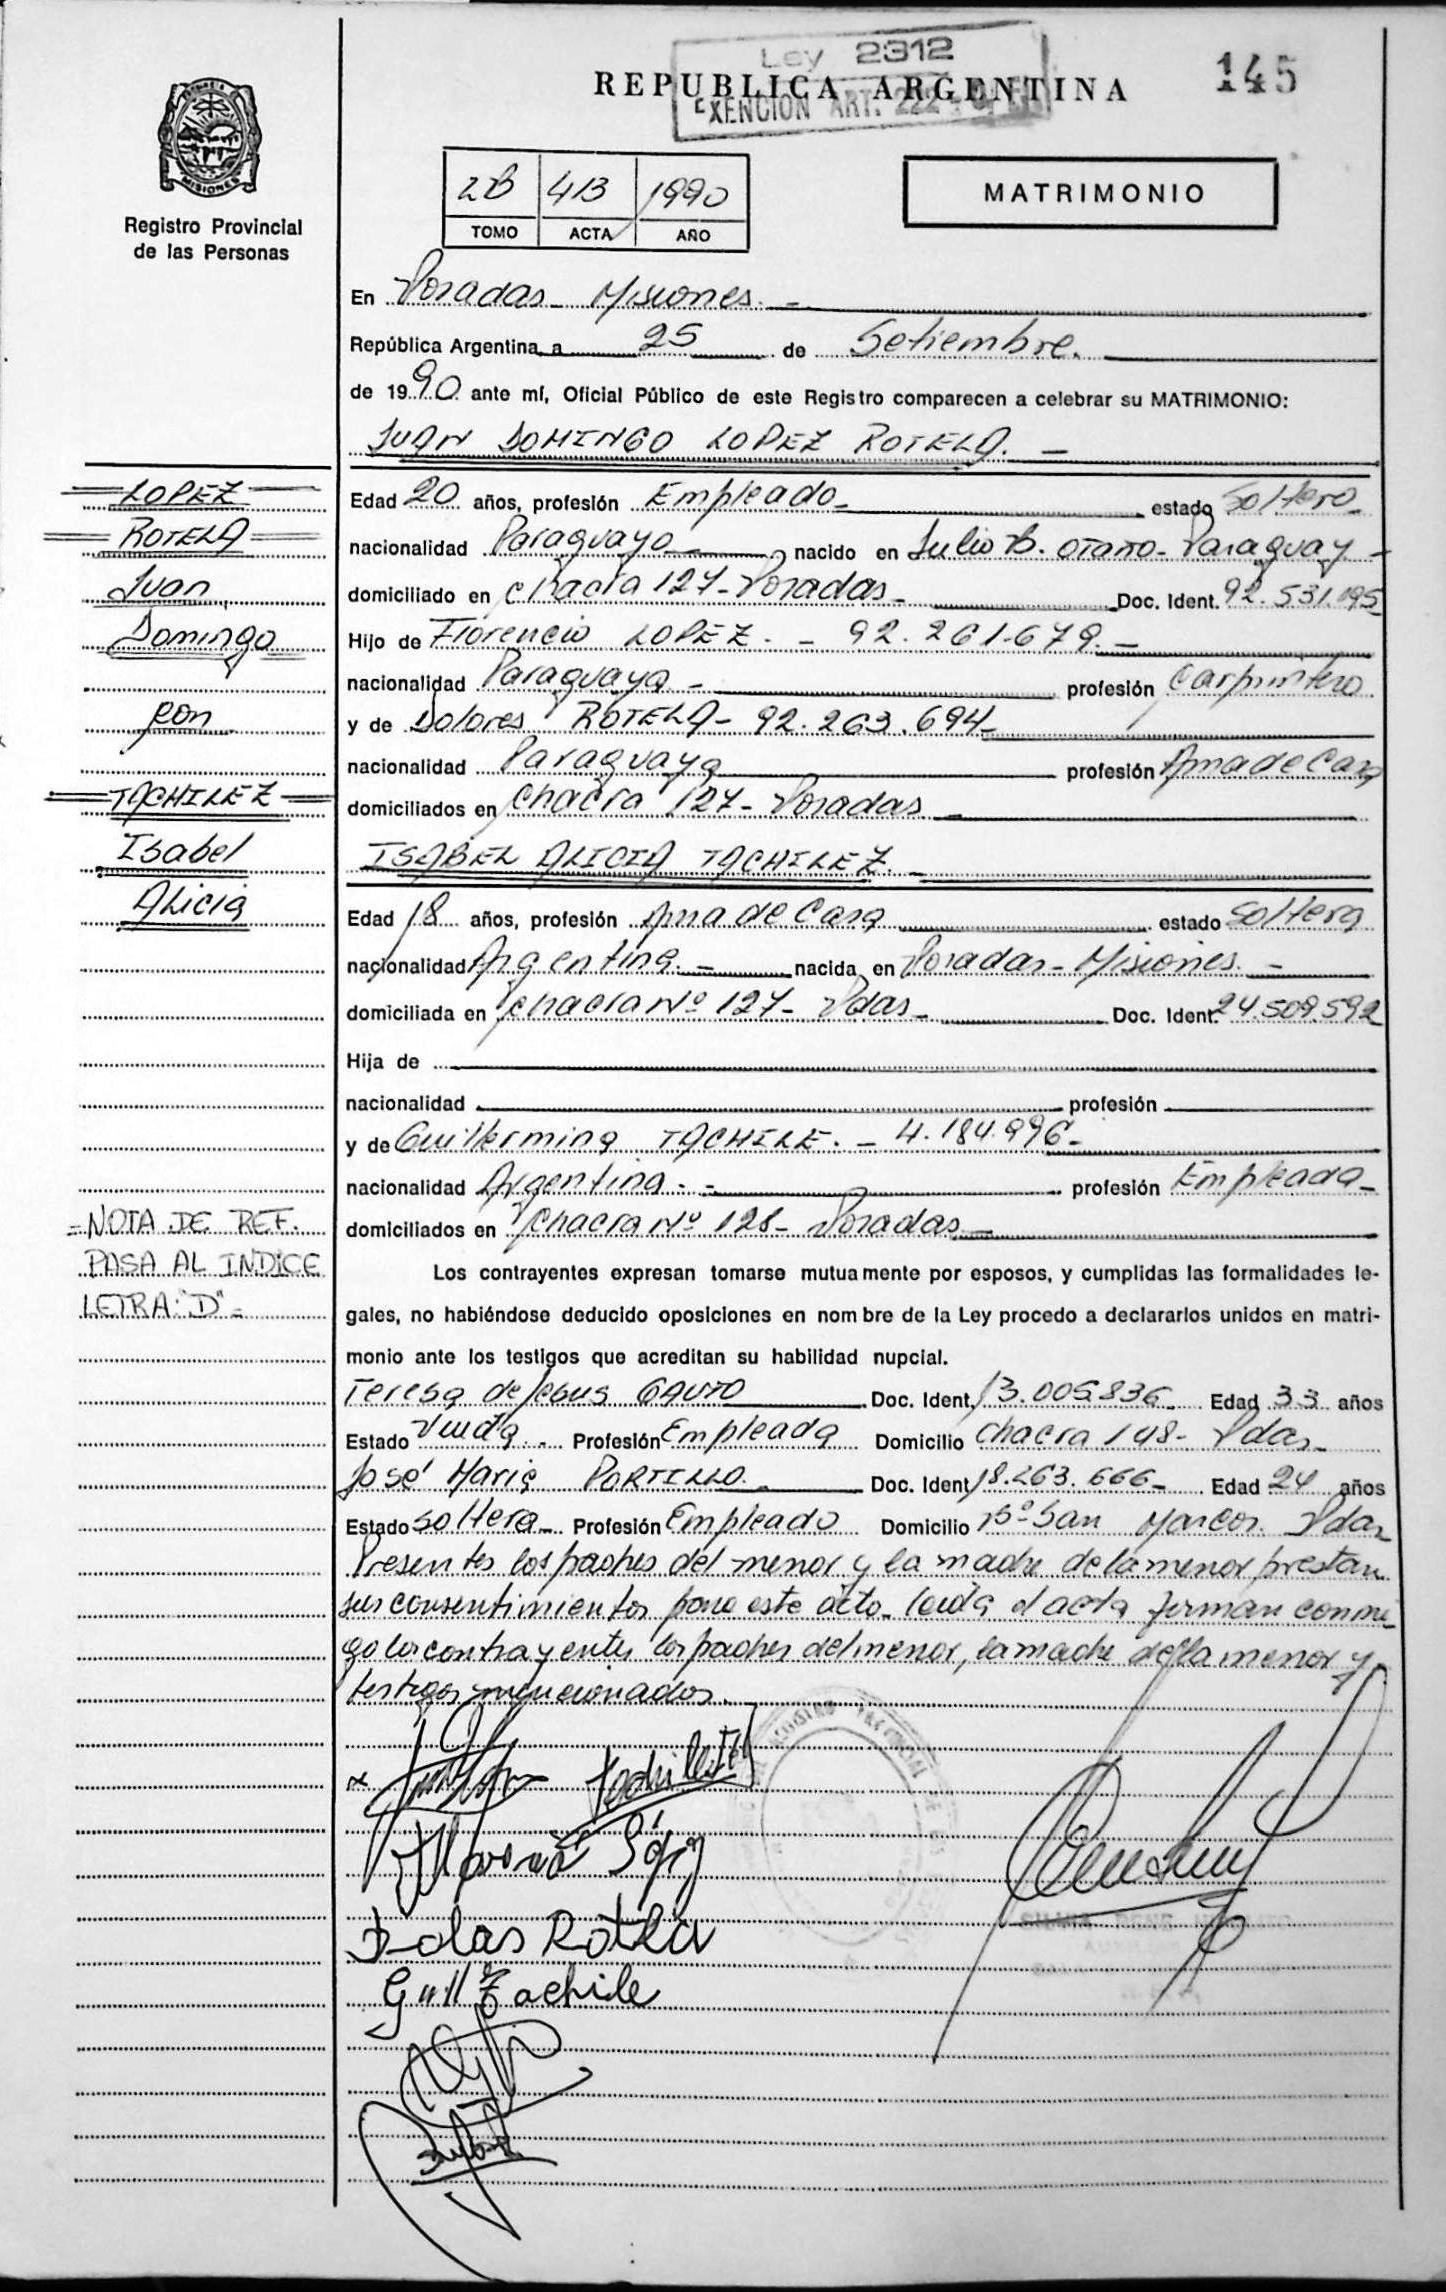 Ley 2312
REPUBLICA ARGENTINA
EXENCION ART. 222
145
MISIONES
Registro Provincial
de las Personas
2B 413 1990
TOMO ACTA AÑO
MATRIMONIO
En Posadas - Misiones. -
República Argentina, a 25 de Setiembre.
de 1990 ante mí, Oficial Público de este Registro comparecen a celebrar su MATRIMONIO:
JUAN DOMINGO LOPEZ ROTELA. -
LOPEZ
ROTELA
Juan
Domingo
con
TACHILEZ
Isabel
Alicia
Edad 20 años, profesión Empleado - estado Soltero -
nacionalidad Paraguayo - nacido en Julio B. Otaño - Paraguay -
domiciliado en Chacra 127 - Posadas - Doc. Ident. 92.531.195
Hijo de Florencio LOPEZ. - 92.261.679. -
nacionalidad Paraguaya - profesión Carpintero
y de Dolores ROTELA - 92.263.694 -
nacionalidad Paraguaya profesión Ama de Casa
domiciliados en Chacra 127 - Posadas -
ISABEL ALICIA TACHILEZ. -
Edad 18 años, profesión Ama de Casa estado Soltera
nacionalidad Argentina. - nacida en Posadas - Misiones. -
domiciliada en Chacra Nº 127 - Pdas - Doc. Ident. 24.509.592
Hija de
nacionalidad profesión
y de Guillermina TACHILE. - 4.184.996 -
nacionalidad Argentina. - profesión Empleada -
domiciliados en Chacra Nº 128 - Posadas -
= NOTA DE REF.
PASA AL INDICE
LETRA: "D" -
Los contrayentes expresan tomarse mutuamente por esposos, y cumplidas las formalidades le-
gales, no habiéndose deducido oposiciones en nombre de la Ley procedo a declararlos unidos en matri-
monio ante los testigos que acreditan su habilidad nupcial.
Teresa de Jesus GAUTO Doc. Ident. 13.005.836 - Edad 33 años
Estado Viuda. - Profesión Empleada Domicilio Chacra 148 - Pdas -
José Maria PORTILLO. - Doc. Ident. 18.263.666 - Edad 24 años
Estado soltera - Profesión Empleado Domicilio Bº San Marcos. Pdas
Presentes los padres del menor y la madre de la menor prestan
sus consentimientos para este acto. leida el acta firman conmi-
go los contrayentes los padres del menor, la madre de la menor y
testigos mencionados.
REGISTRO PROVINCIAL DE LAS
Dolas Rotela
Guill Tachile